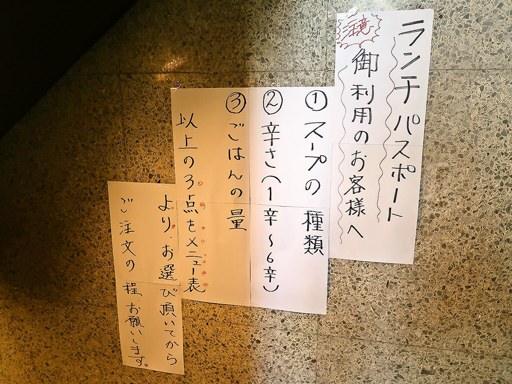 ランチパスポート
注意
御利用のお客様へ
①スープの種類
②辛さ(1辛〜6辛)
③ごはんの量
以上の3点をメニュー表
より お選び頂いてから
ご注文の程お願いします。